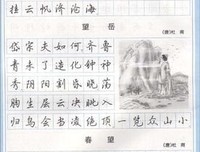 挂云帆济沧海
望岳
(唐)杜甫
岱宗夫如何齐鲁
青未了造化钟神
秀阴阳割昏晓荡
胸生层云决眦入
归鸟会当凌绝顶一览众山小
春望
(唐)杜甫